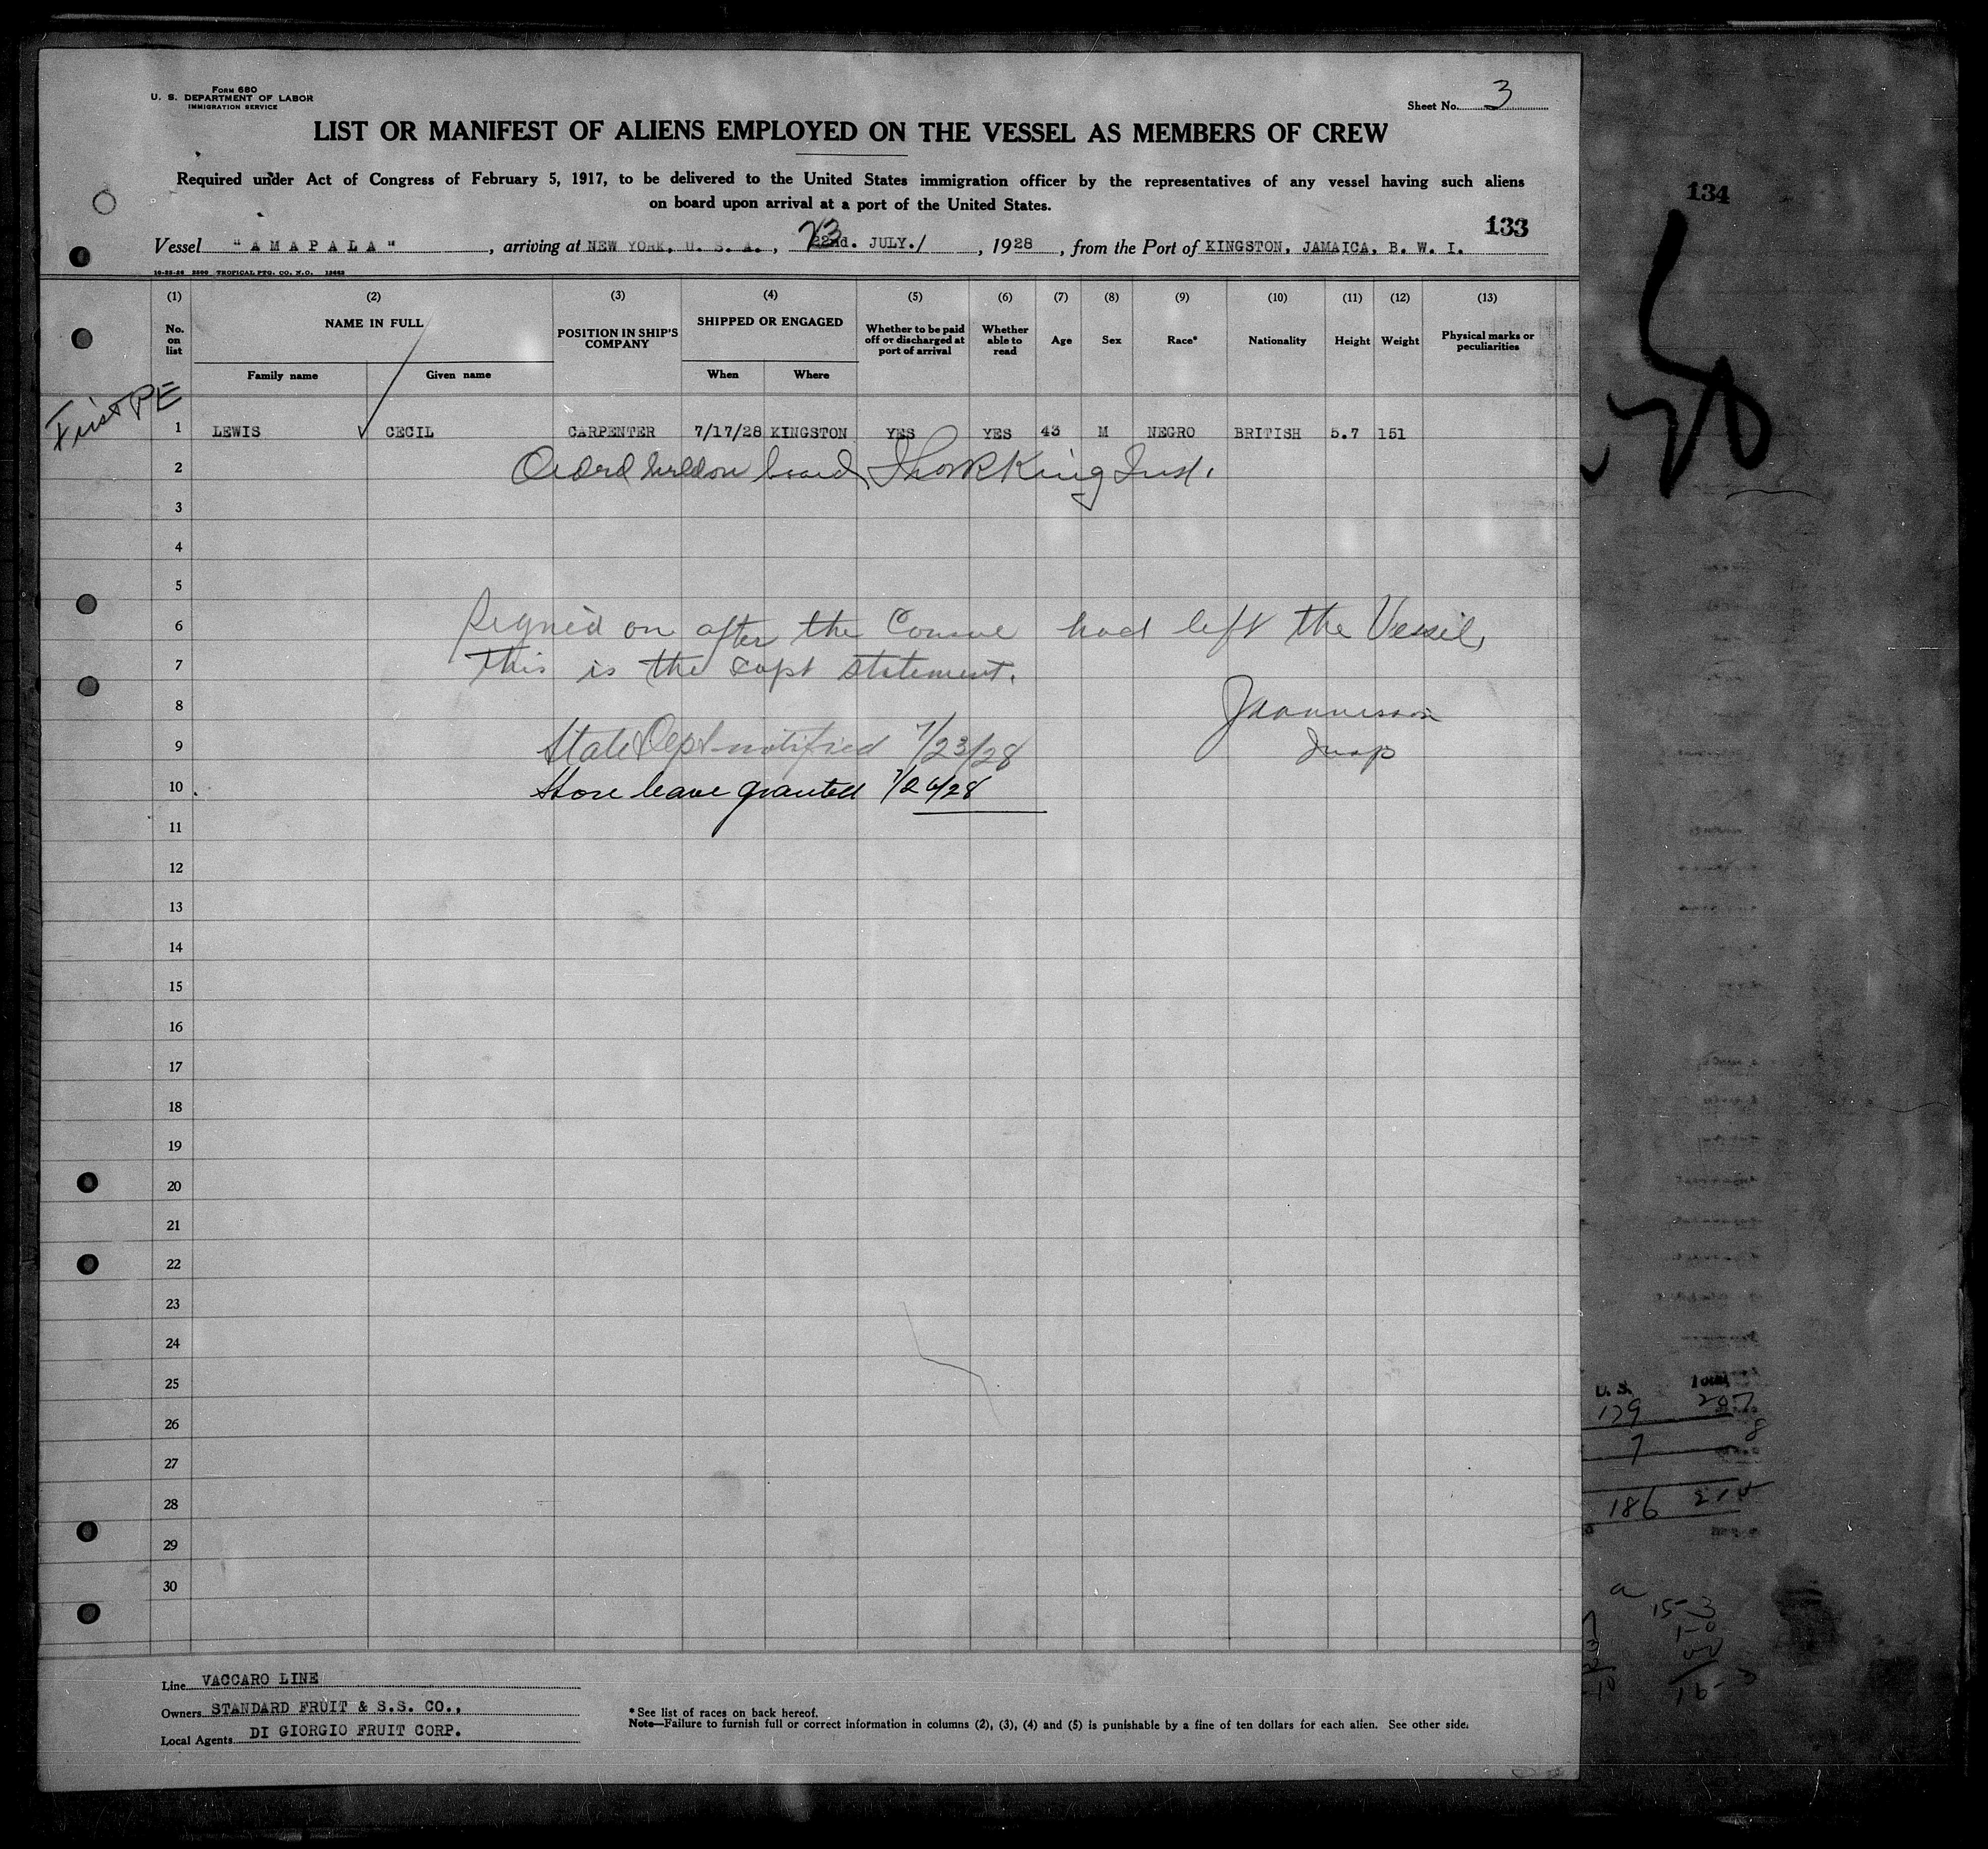 FORM 680
U. S. DEPARTMENT OF LABOR
IMMIGRATION SERVICE
Sheet No. 3
LIST OR MANIFEST OF ALIENS EMPLOYED ON THE VESSEL AS MEMBERS OF CREW
Required under Act of Congress of February 5, 1917, to be delivered to the United States immigration officer by the representatives of any vessel having such aliens
on board upon arrival at a port of the United States.
134
133
Vessel "AMAPALA", arriving at NEW YORK, U. S. A., 23 22nd. JULY./, 1928, from the Port of KINGSTON, JAMAICA, B. W. I.
10-25-26 2500 TROPICAL PTG. CO. N.O.
(1) (2) (3) (4) (5) (6) (7) (8) (9) (10) (11) (12) (13)
No. on list NAME IN FULL POSITION IN SHIP'S COMPANY SHIPPED OR ENGAGED Whether to be paid off or discharged at port of arrival Whether able to read Age Sex Race* Nationality Height Weight Physical marks or peculiarities
Family name Given name When Where
First PE
1 LEWIS ✓ CECIL CARPENTER 7/17/28 KINGSTON YES YES 43 M NEGRO BRITISH 5.7 151
2 board King
3
4
5
6 Signed on after the Consul had left the Vessel,
7 This is the Capt statement.
8
9 State Dept notified 7/23/28 Insp
10 Shore leave granted 7/26/28
11
12
13
14
15
16
17
18
19
20
21
22
23
24
25
26
27
28
29
30
U. S. Total
179 207
7 8
186
Line VACCARO LINE
Owners STANDARD FRUIT & S.S. CO.,
Local Agents DI GIORGIO FRUIT CORP.
* See list of races on back hereof.
Note—Failure to furnish full or correct information in columns (2), (3), (4) and (5) is punishable by a fine of ten dollars for each alien. See other side.